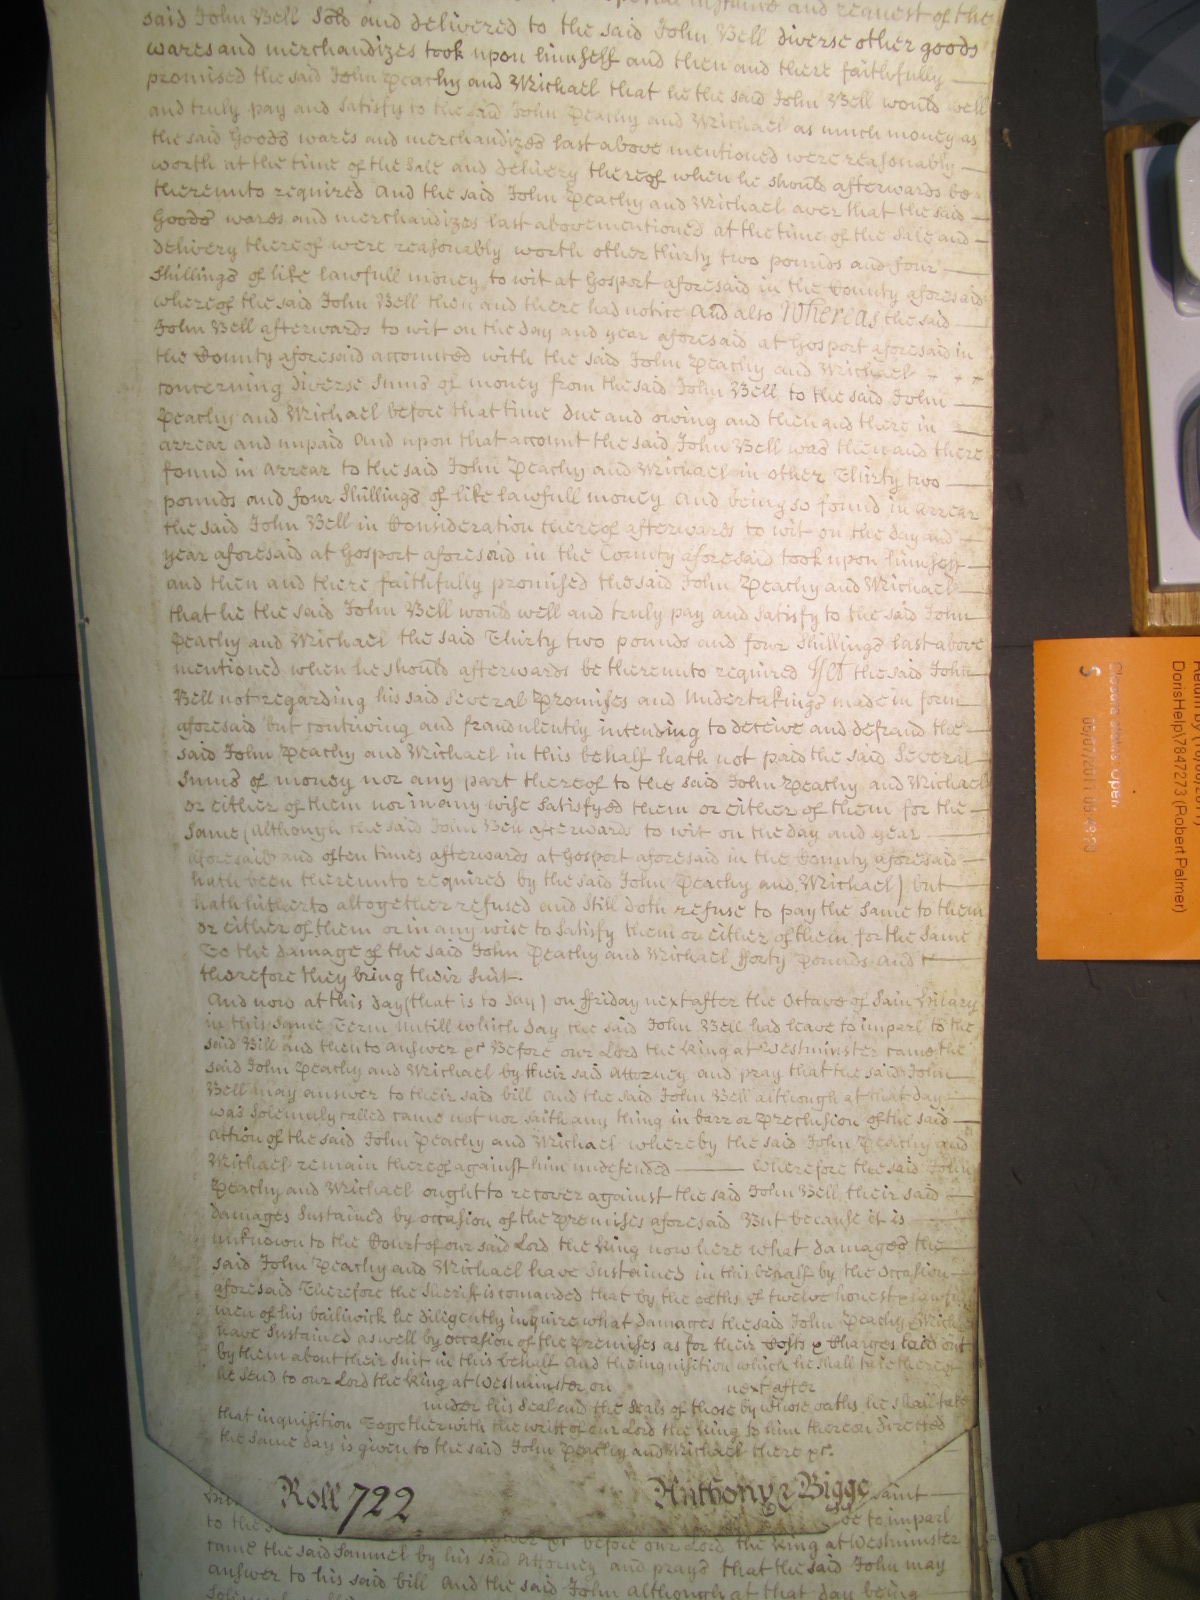 special instance and request of the
said John Bell Sold and delivered to the said John Bell diverse other goods
wares and merchandizes took upon himself and then and there faithfully
promised the said John Peachy and Michael that he the said John Bell would well
and truly pay and satisfy to the said John Peachy and Michael as much money as
the said Goods wares and merchandizes last above mentioned were reasonably
worth at the time of the Sale and delivery thereof when he should afterwards be
thereunto required And the said John Peachy and Michael aver that the said
Goods wares and merchandizes last abovementioned at the time of the Sale and
delivery thereof were reasonably worth other thirty two pounds and four
Shillings of like lawfull money to wit at Gosport aforesaid in the County aforesaid
whereof the said John Bell then and there had notice And also Whereas the said
John Bell afterwards to wit on the day and year aforesaid at Gosport aforesaid in
the County aforesaid accounted with the said John Peachy and Michael
concerning diverse Sums of money from the said John Bell to the said John
Peachy and Michael before that time due and owing and then and there in
arrear and unpaid And upon that account the said John Bell was then and there
found in Arrear to the said John Peachy and Michael in other Thirty two
pounds and four Shillings of like lawfull money And being so found in arrear
the said John Bell in Consideration thereof afterwards to wit on the day and
year aforesaid at Gosport aforesaid in the County aforesaid took upon himself
and then and there faithfully promised the said John Peachy and Michael
that he the said John Bell would well and truly pay and satisfy to the said John
Peachy and Michael the said Thirty two pounds and four Shillings last above
mentioned when he should afterwards be thereunto required Yet the said John
Bell not regarding his said Several Promises and Undertakings made in form
aforesaid but contriving and fraudulently intending to deceive and defraud the
said John Peachy and Michael in this behalf hath not paid the said Several
Sums of money nor any part thereof to the said John Peachy and Michael
or either of them nor in any wise satisfyed them or either of them for the
Same (Although the said John Bell afterwards to wit on the day and year
aforesaid and often times afterwards at Gosport aforesaid in the County aforesaid
hath been thereunto required by the said John Peachy and Michael) but
hath hitherto altogether refused and still doth refuse to pay the same to them
or either of them or in any wise to satisfy them or either of them for the Same
To the damage of the said John Peachy and Michael fforty pounds And
therefore they bring their Suit.
And now at this day (that is to say) on ffriday next after the Octave of Saint Hilary
in this Same Term Untill which day the said John Bell had leave to imparl to the
said Bill and then to answer &c Before our Lord the King at Westminster came the
said John Peachy and Michael by their said Attorney and pray that the said John
Bell may answer to their said bill And the said John Bell although at that day
was Solemnly called came not nor saith any thing in barr or Preclusion of the said
Action of the said John Peachy and Michael whereby the said John Peachy and
Michael remain thereof against him undefended Wherefore the said John
Peachy and Michael ought to recover against the said John Bell their said
damages Sustained by occasion of the Premises aforesaid But because it is
unknown to the Court of our said Lord the King now here what damages the
said John Peachy and Michael have Sustained in this behalf by the Occasion
aforesaid Therefore the Sheriff is comanded that by the oaths of twelve honest & lawful
men of his bailiwick he diligently inquire what damages the said John Peachy & Mich
have Sustained aswell by occasion of the Premises as for their Costs & Charges laid out
by them about their Suit in this behalf And the inquisition which he shall take thereof
he send to our Lord the King at Westminster on next after
under his Seal and the Seals of those by whose oaths he shall take
that inquisition Together with the writt of our Lord the King to him thereon directed
the same day is given to the said John Peachy and Michael there &c.
Roll 722 Anthony & Bigge
saint
to the be to imparl
before our Lord the King at Westminster
came the said Samuel by his said Attorney and prays that the said John may
answer to his said bill And the said John although at that day being
5
05/07/2011
DorisHelp\7847273 (Robert Palmer)